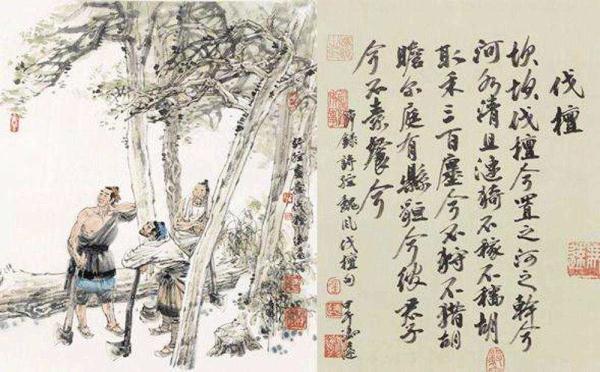 伐檀
坎坎伐檀兮置之河之幹兮
河水清且漣猗不稼不穡胡
取禾三百廛兮不狩不猎胡
瞻尔庭有縣貆兮彼君子
兮不素餐兮
節錄詩經魏風伐檀句
甲午
詩經畫意伐檀